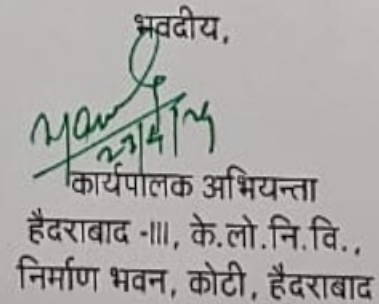 भवदीय,
23/4/24
कार्यपालक अभियन्ता
हैदराबाद -III, के.लो.नि.वि.,
निर्माण भवन, कोटी, हैदराबाद